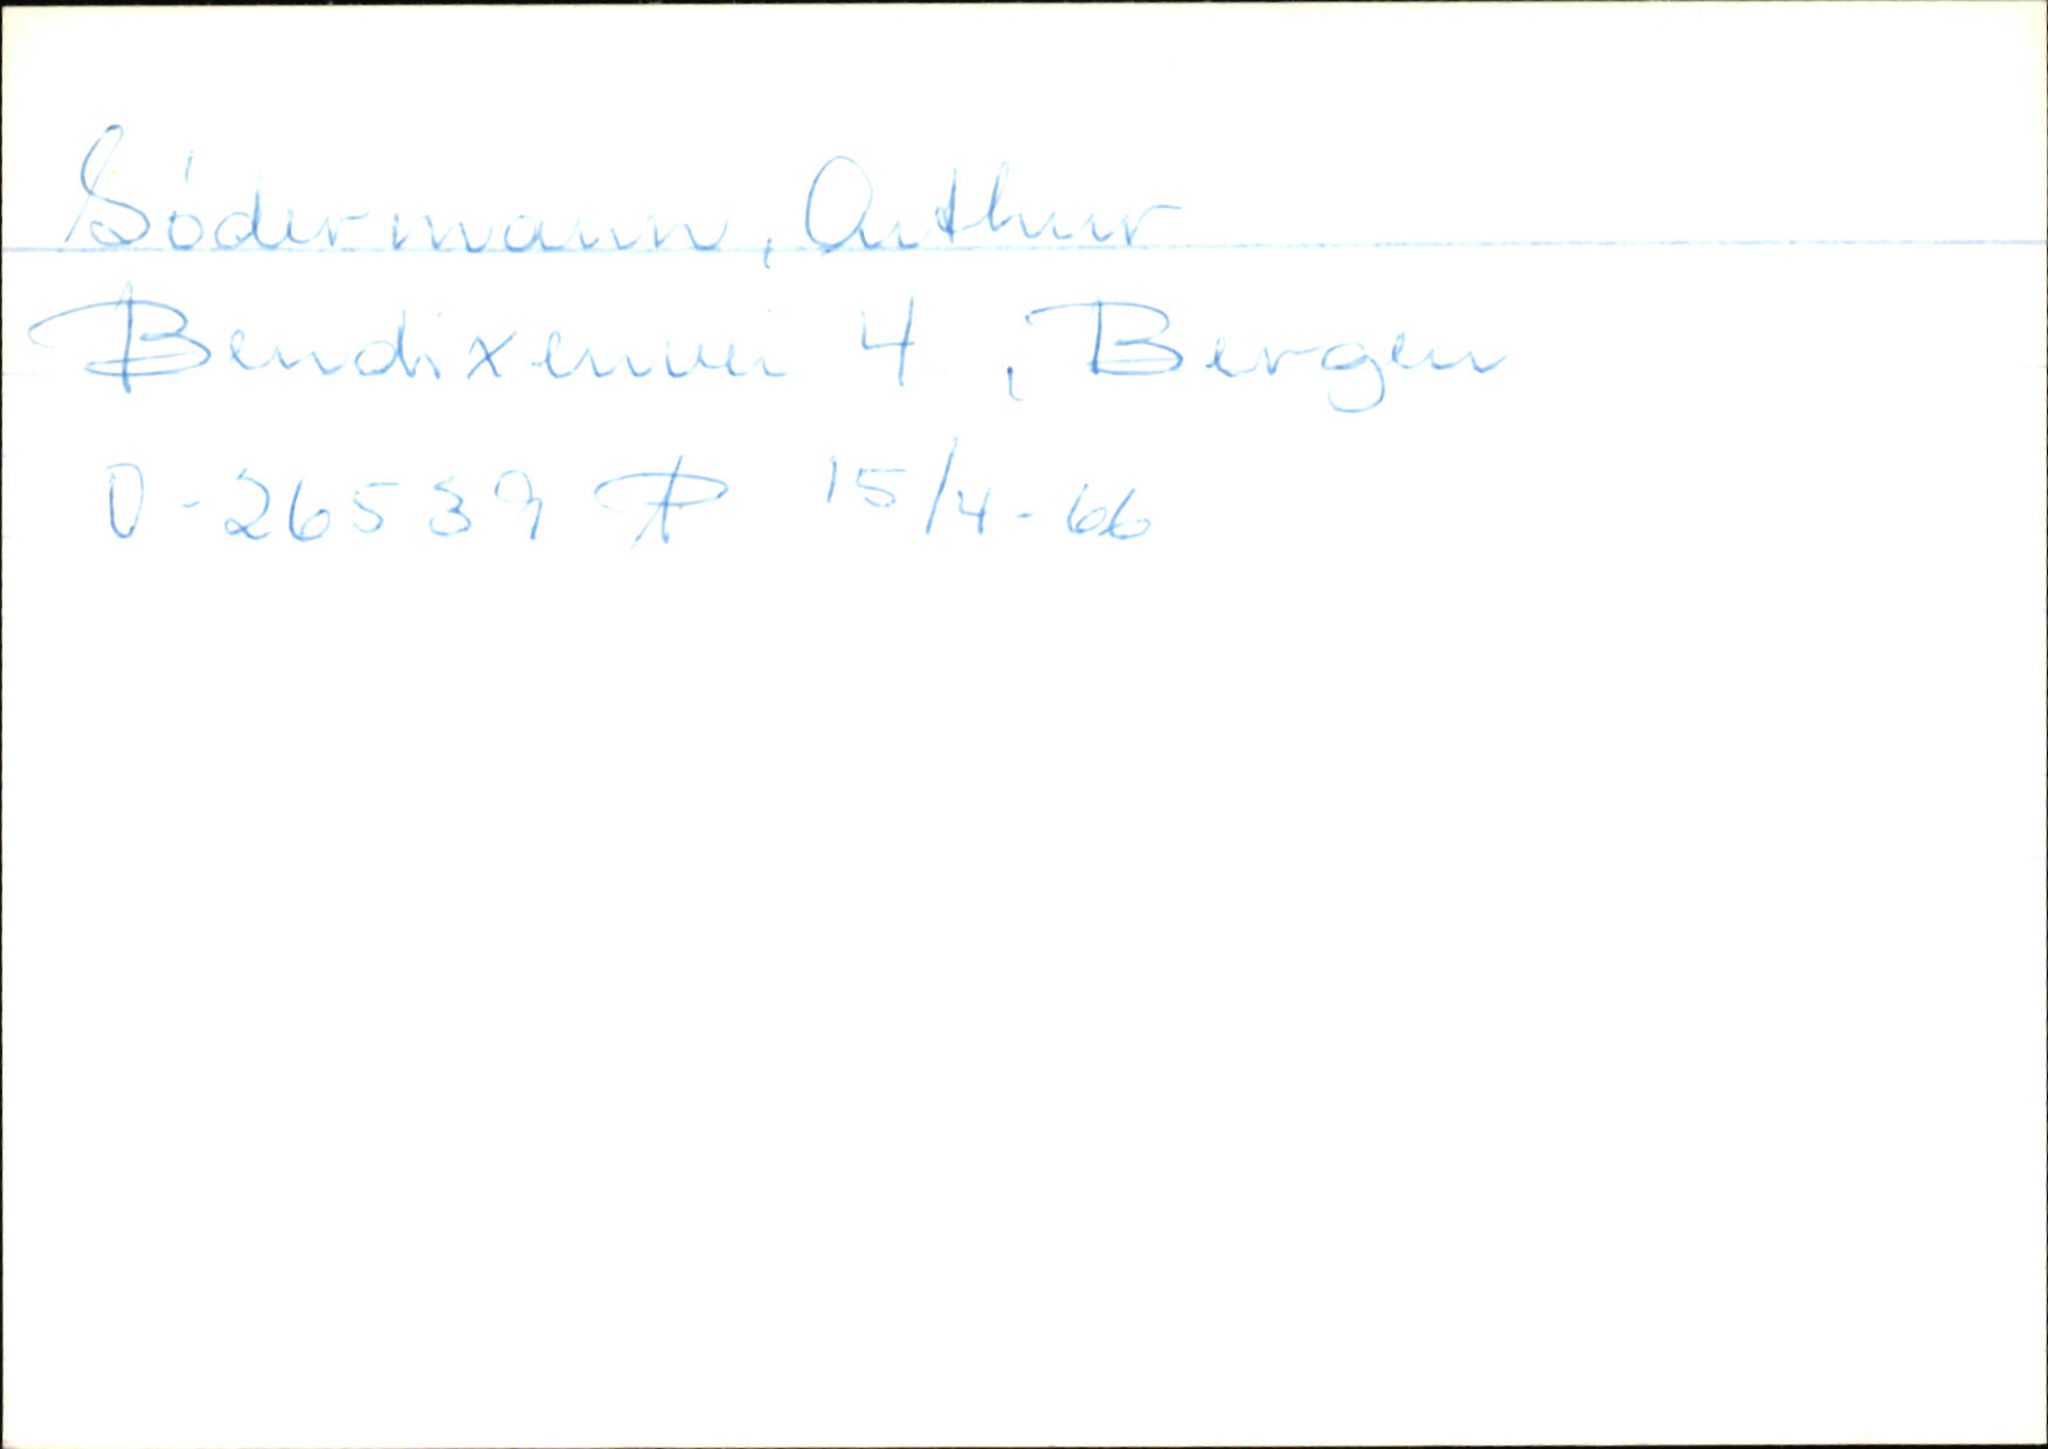 Södermann, Arthur
Bendixenvei 4, Bergen
O-26539 P 15/4-66